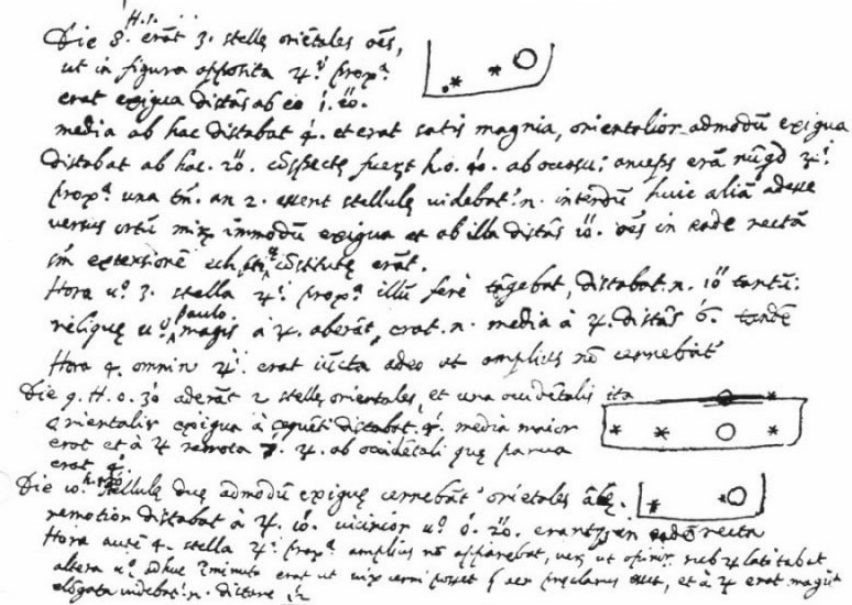 H. 1.
Die 8. erãt 3. stellę oriẽtales oẽs,
ut in figura apposita ♃ı prox.ª
erat exigua distãs ab eo 1. 20.
media ab hac distabat 4. et erat satis magna, orientalior admodũ exigua
distabat ab hac. 20. cõspectę fuerũt h.0. 40. ab occasu; anceps erã nũqd ♃ı
prox.ª una tñ. an 2. essent stellulę videbat'. n. interdũ huic aliã adesse
versus ortũ mirũ immodũ exigua et ab illa distãs 10. oẽs in eadẽ rectã
sm̃ extensionẽ constitutę erãt.
Hora u.º 3. stella ♃ı prox.ª illũ ferè tãgebat, distabat. n. 10 tantũ:
paulo
reliquę u.º magis à ♃. aberãt, erat. n. media à ♃. distãs 6.
Hora 4. omnin. ♃ı erat iũcta adeo ut amplius nõ cernebat'
Die 9. H. 0. 30 aderãt 2 stellę orientales, et una occidẽtalis ita
orientalis exigua à sequẽti distabat. 4. media maior
erat et à ♃ remota 7. ♃. ab occidẽtali quę parua
erat 4.
Die 10. h. 1.30 stellulę duę admodũ exiguę cernebãt' oriẽtales ãbę.
remotior distabat à ♃. 10. vicinior u.º 0. 20. erantq; in eadẽ recta
Hora autẽ 4. stella ♃ı prox.ª amplius nõ apparebat, verũ ut opinor sub ♃ latitabat
altera u.º adhuc ĩminuta erat ut vix cerni posset aer pręclarus esset, et à ♃ erat magis
elõgata videbat'. n. distare